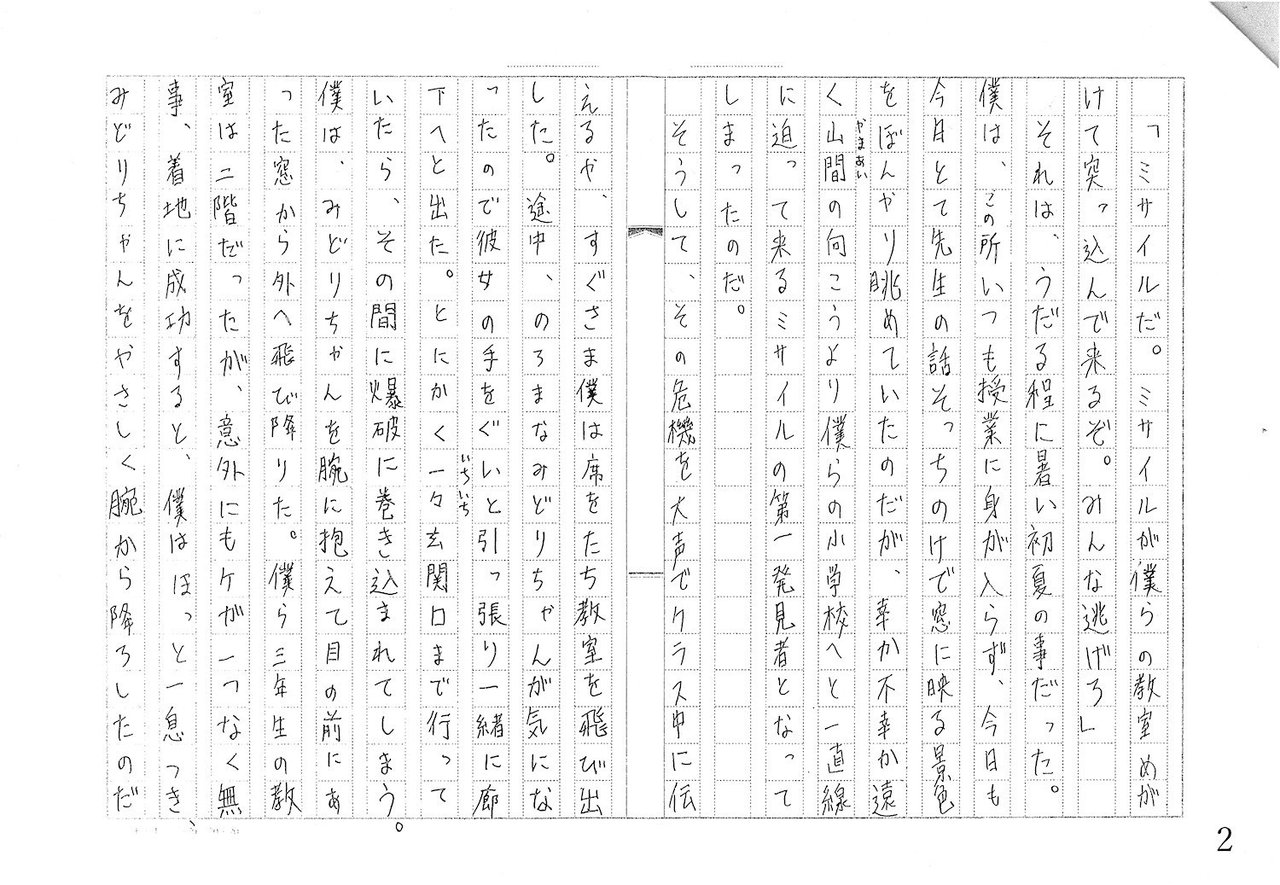 「ミサイルだ。ミサイルが僕らの教室めが
けて突っ込んで来るぞ。みんな逃げろ」
それは、うだる程に暑い初夏の事だった。
僕は、この所いつも授業に身が入らず、今日も
今日とて先生の話そっちのけで窓に映る景色
をぼんやり眺めていたのだが、幸か不幸か遠
く山間の向こうより僕らの小学校へと一直線
やまあい
に迫って来るミサイルの第一発見者となって
しまったのだ。
そうして、その危機を大声でクラス中に伝
えるや、すぐさま僕は席をたち教室を飛び出
した。途中、のろまなみどりちゃんが気にな
ったので彼女の手をぐいと引っ張り一緒に廊
下へと出た。とにかく一々玄関口まで行って
いちいち
いたら、その間に爆破に巻き込まれてしまう。
僕は、みどりちゃんを腕に抱えて目の前にあ
った窓から外へ飛び降りた。僕ら三年生の教
室は二階だったが、意外にもケガ一つなく無
事、着地に成功すると、僕はほっと一息つき、
みどりちゃんをやさしく腕から降ろしたのだ
2